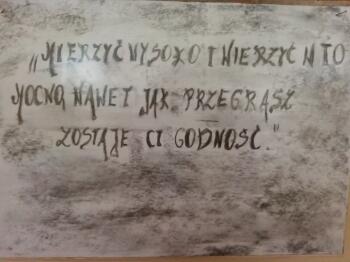 „MIERZYĆ WYSOKO I WIERZYĆ W TO
MOCNO NAWET JAK PRZEGRASZ
ZOSTAJE CI GODNOŚĆ."